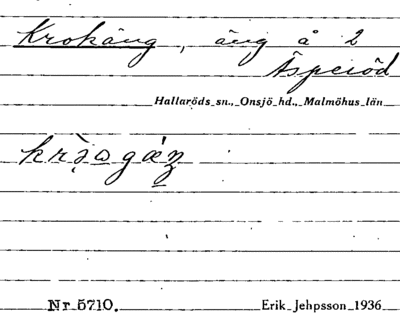 Krokäng, äng å 2
Äsperöd
Hallaröds sn., Onsjö hd., Malmöhus län
Nr 5710. Erik Jehpsson 1936